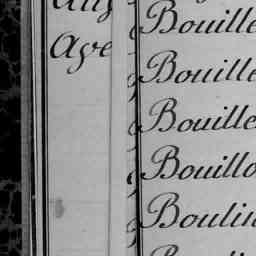 Bouille
Age Bouille
Bouille
Bouillo
Boulin